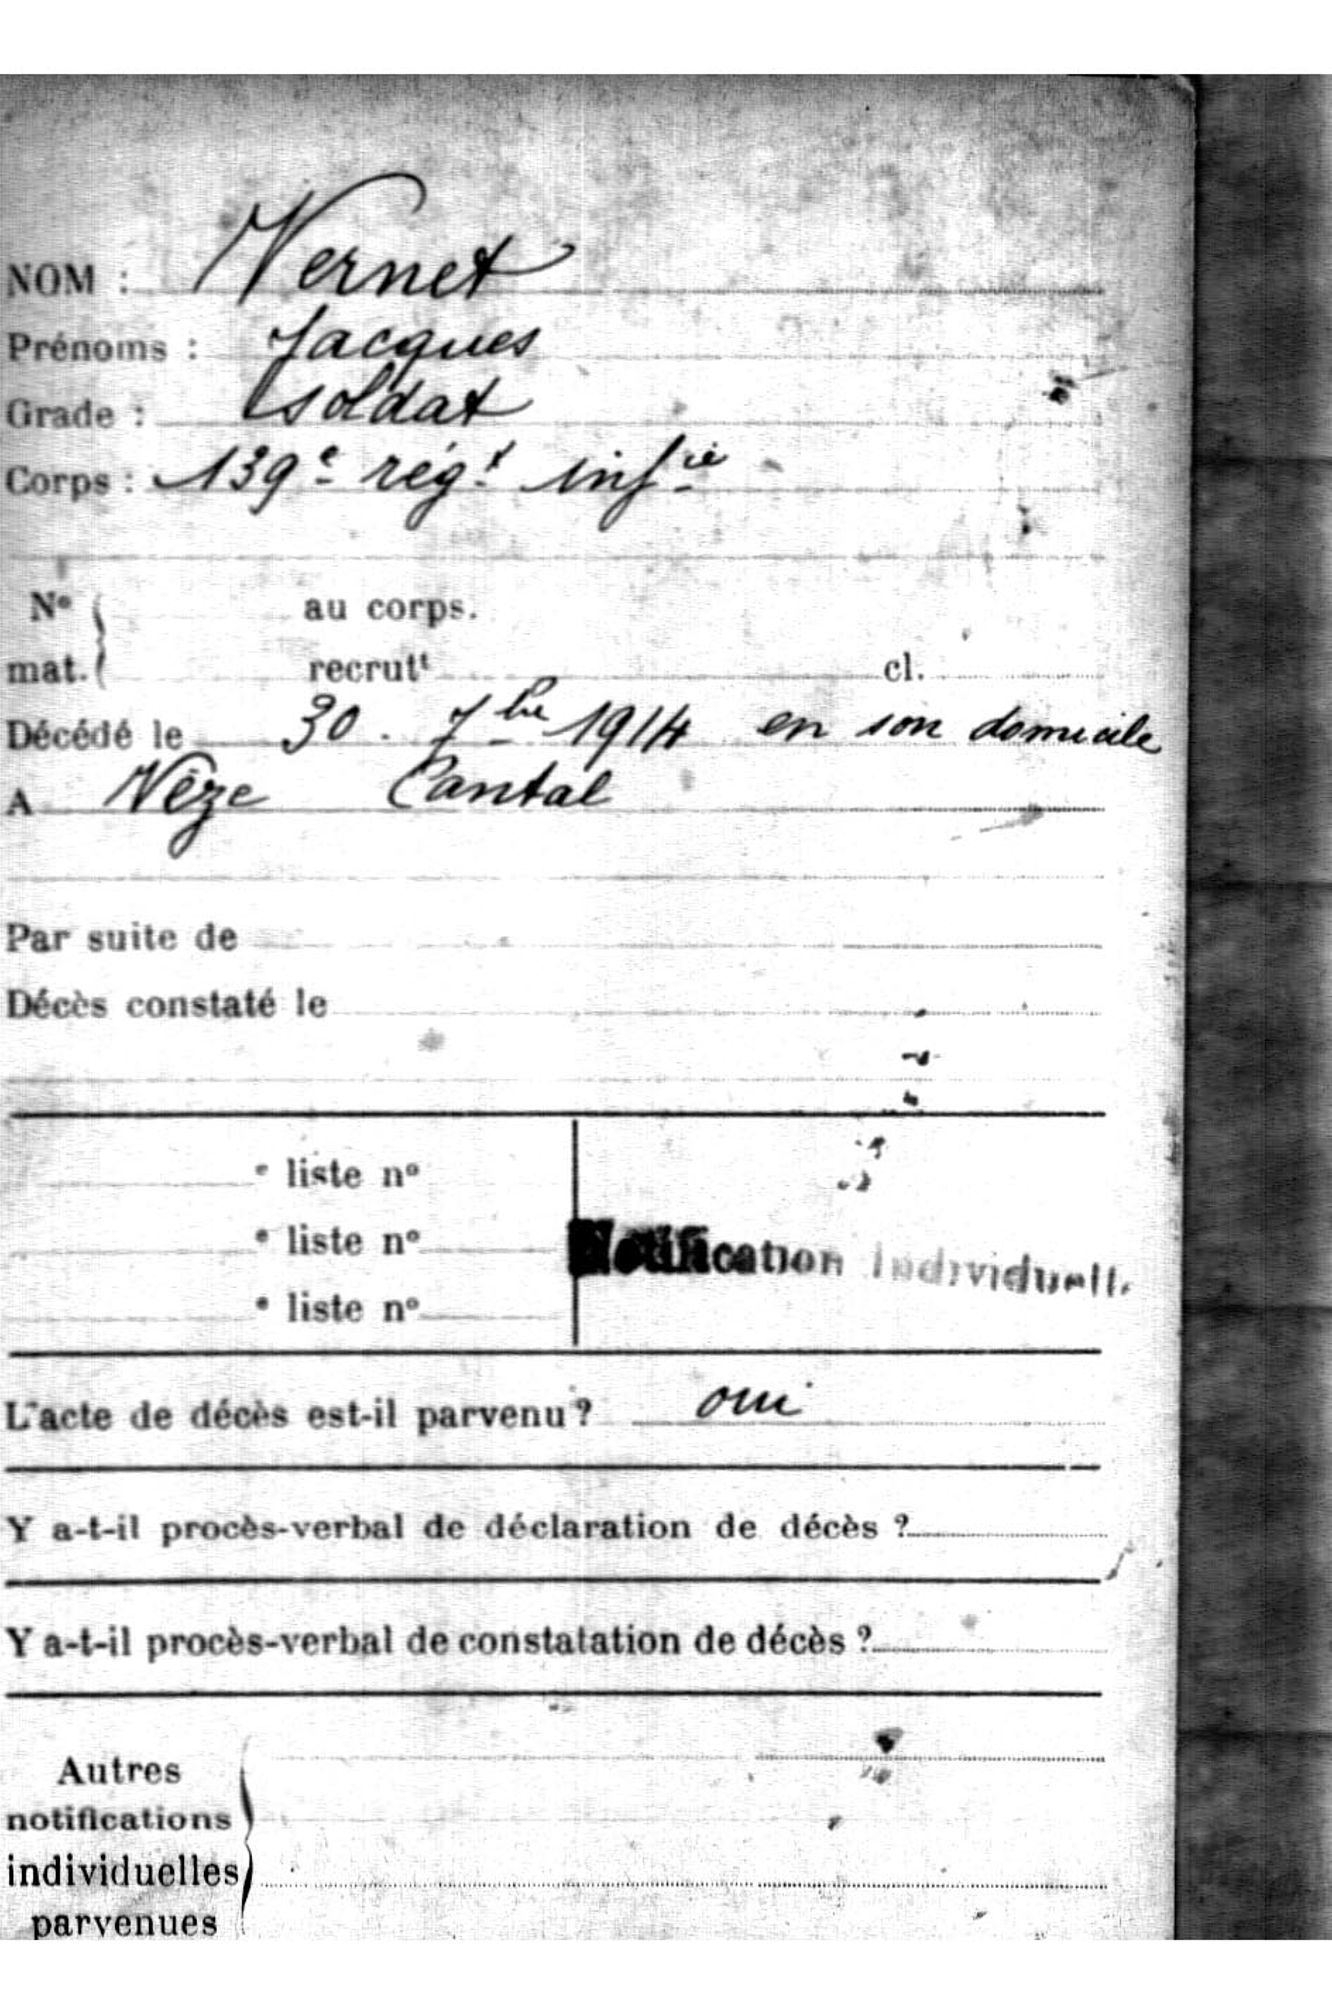 NOM : Vernet
Prénoms : Jacques
Grade : soldat
Corps : 139e régt infie
No au corps.
mat. recrutt cl.
Décédé le 30 7bre 1914 en son domicile
A Vèze Cantal
Par suite de
Décès constaté le
e liste no
e liste no Notification Individuelle
e liste no
L'acte de décès est-il parvenu ? oui
Y a-t-il procès-verbal de déclaration de décès ?
Y a-t-il procès-verbal de constatation de décès ?
Autres
notifications
individuelles
parvenues